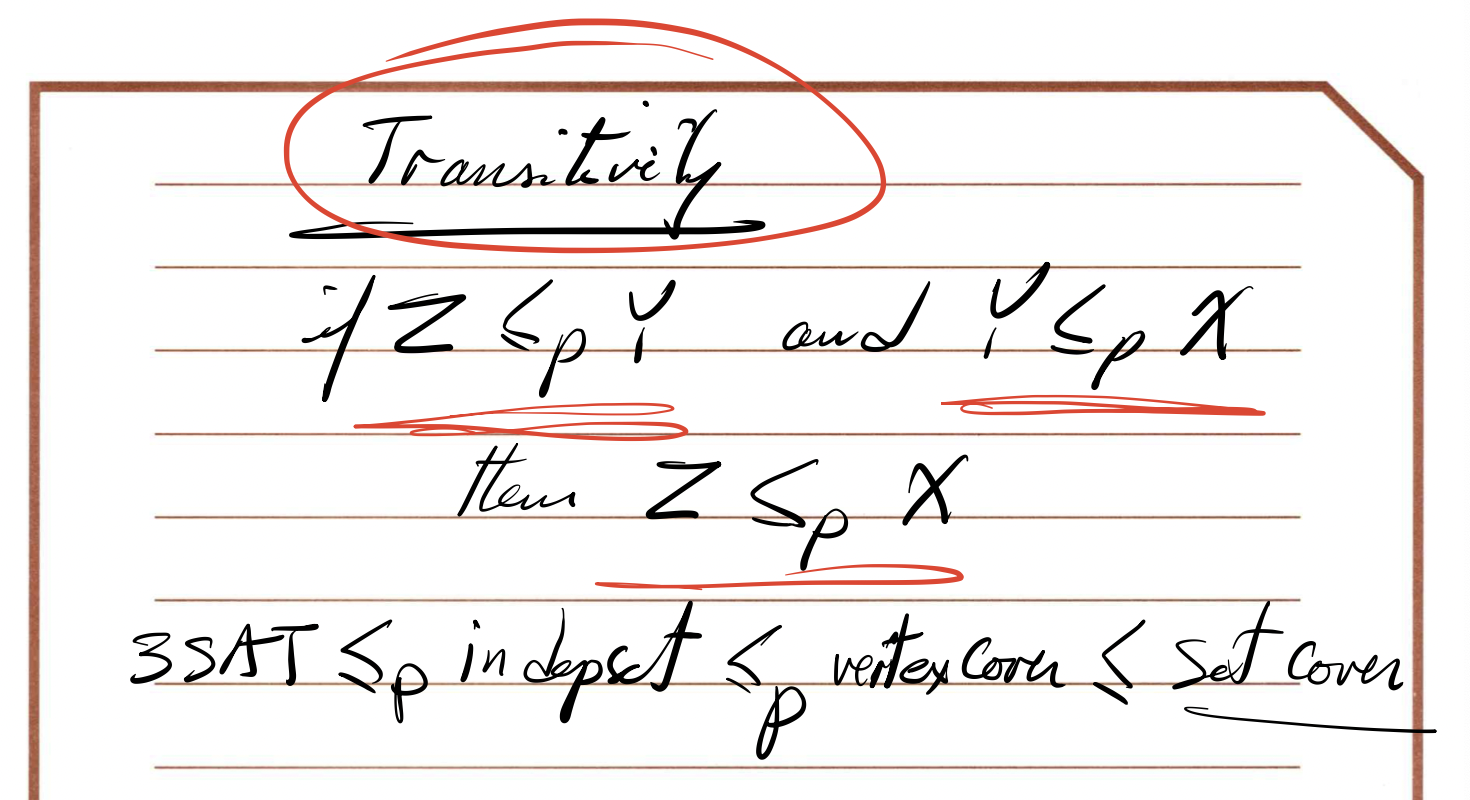 Transitivity
if Z ≤p Y and Y ≤p X
then Z ≤p X
3SAT ≤p indepset ≤p vertex cover ≤ Set Cover